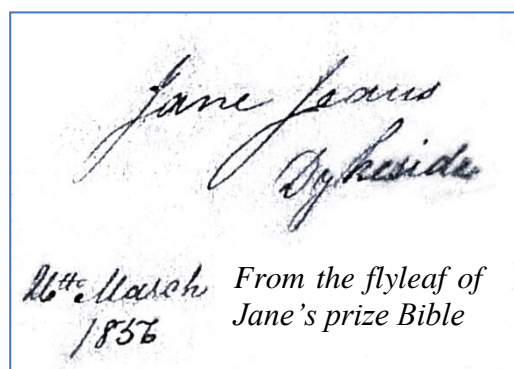 Jane Jeans
Dykeside
26th March
1856
From the flyleaf of
Jane's prize Bible